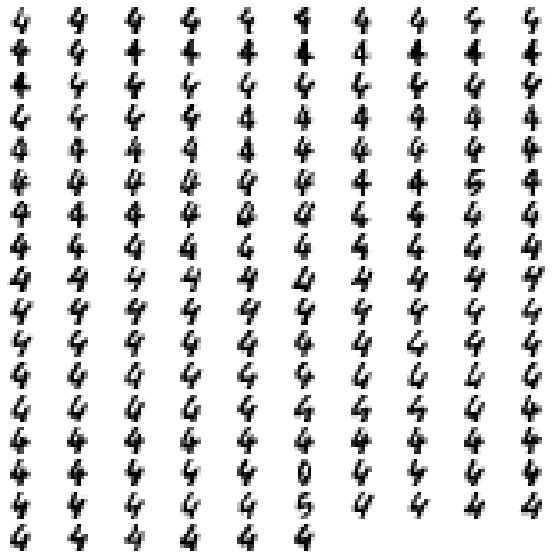 4 4 4 4 4 4 4 4 4 4
4 4 4 4 4 4 4 4 4 4
4 4 4 4 4 4 4 4 4 4
4 4 4 4 4 4 4 4 4 4
4 4 4 4 4 4 4 4 4 4
4 4 4 4 4 4 4 4 5 4
4 4 4 4 4 4 4 4 4 4
4 4 4 4 4 4 4 4 4 4
4 4 4 4 4 4 4 4 4 4
4 4 4 4 4 4 4 4 4 4
4 4 4 4 4 4 4 4 4 4
4 4 4 4 4 4 4 4 4 4
4 4 4 4 4 4 4 4 4 4
4 4 4 4 4 4 4 4 4 4
4 4 4 4 4 0 4 4 4 4
4 4 4 4 4 5 4 4 4 4
4 4 4 4 4 4